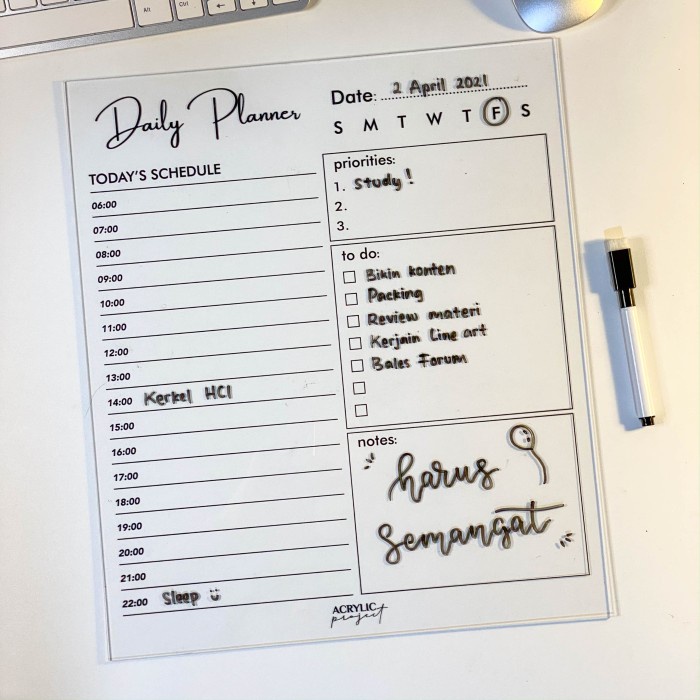 Alt
Ctrl
Daily Planner
Date: 2 April 2021
S M T W T F S
TODAY'S SCHEDULE
06:00
07:00
08:00
09:00
10:00
11:00
12:00
13:00
14:00 Kerkel HCI
15:00
16:00
17:00
18:00
19:00
20:00
21:00
22:00 Sleep
priorities:
1. Study!
2.
3.
to do:
Bikin konten
Packing
Review materi
Kerjain Line art
Bales Forum
notes:
harus
Semangat
ACRYLIC
project